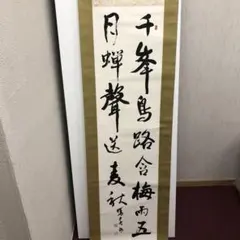 千峯鳥路含梅雨五
月蟬聲送麦秋